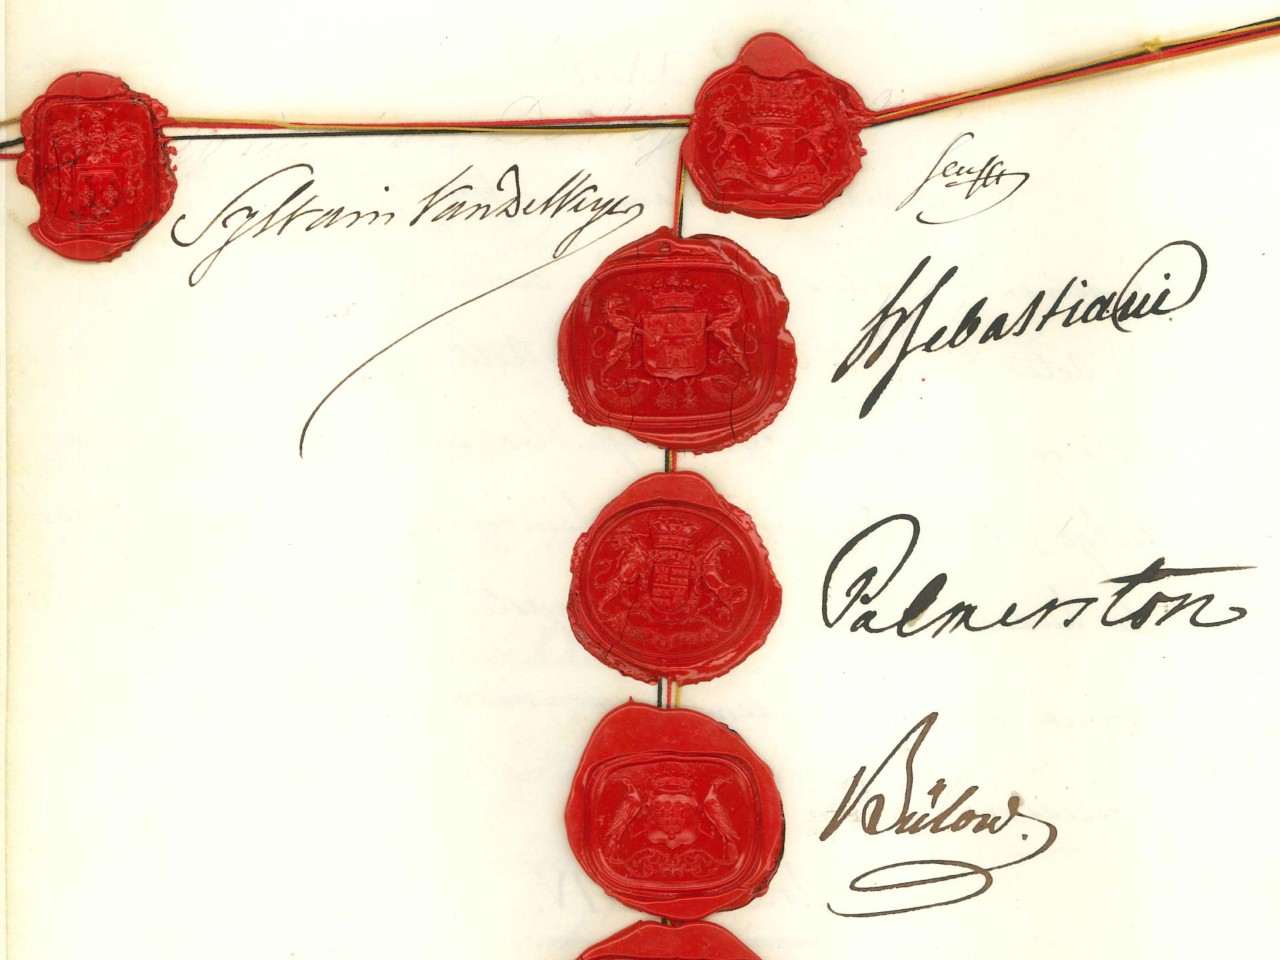 Sylvain Van de Weyer
Senfft
H Sebastiani
Palmerston
Bülow.